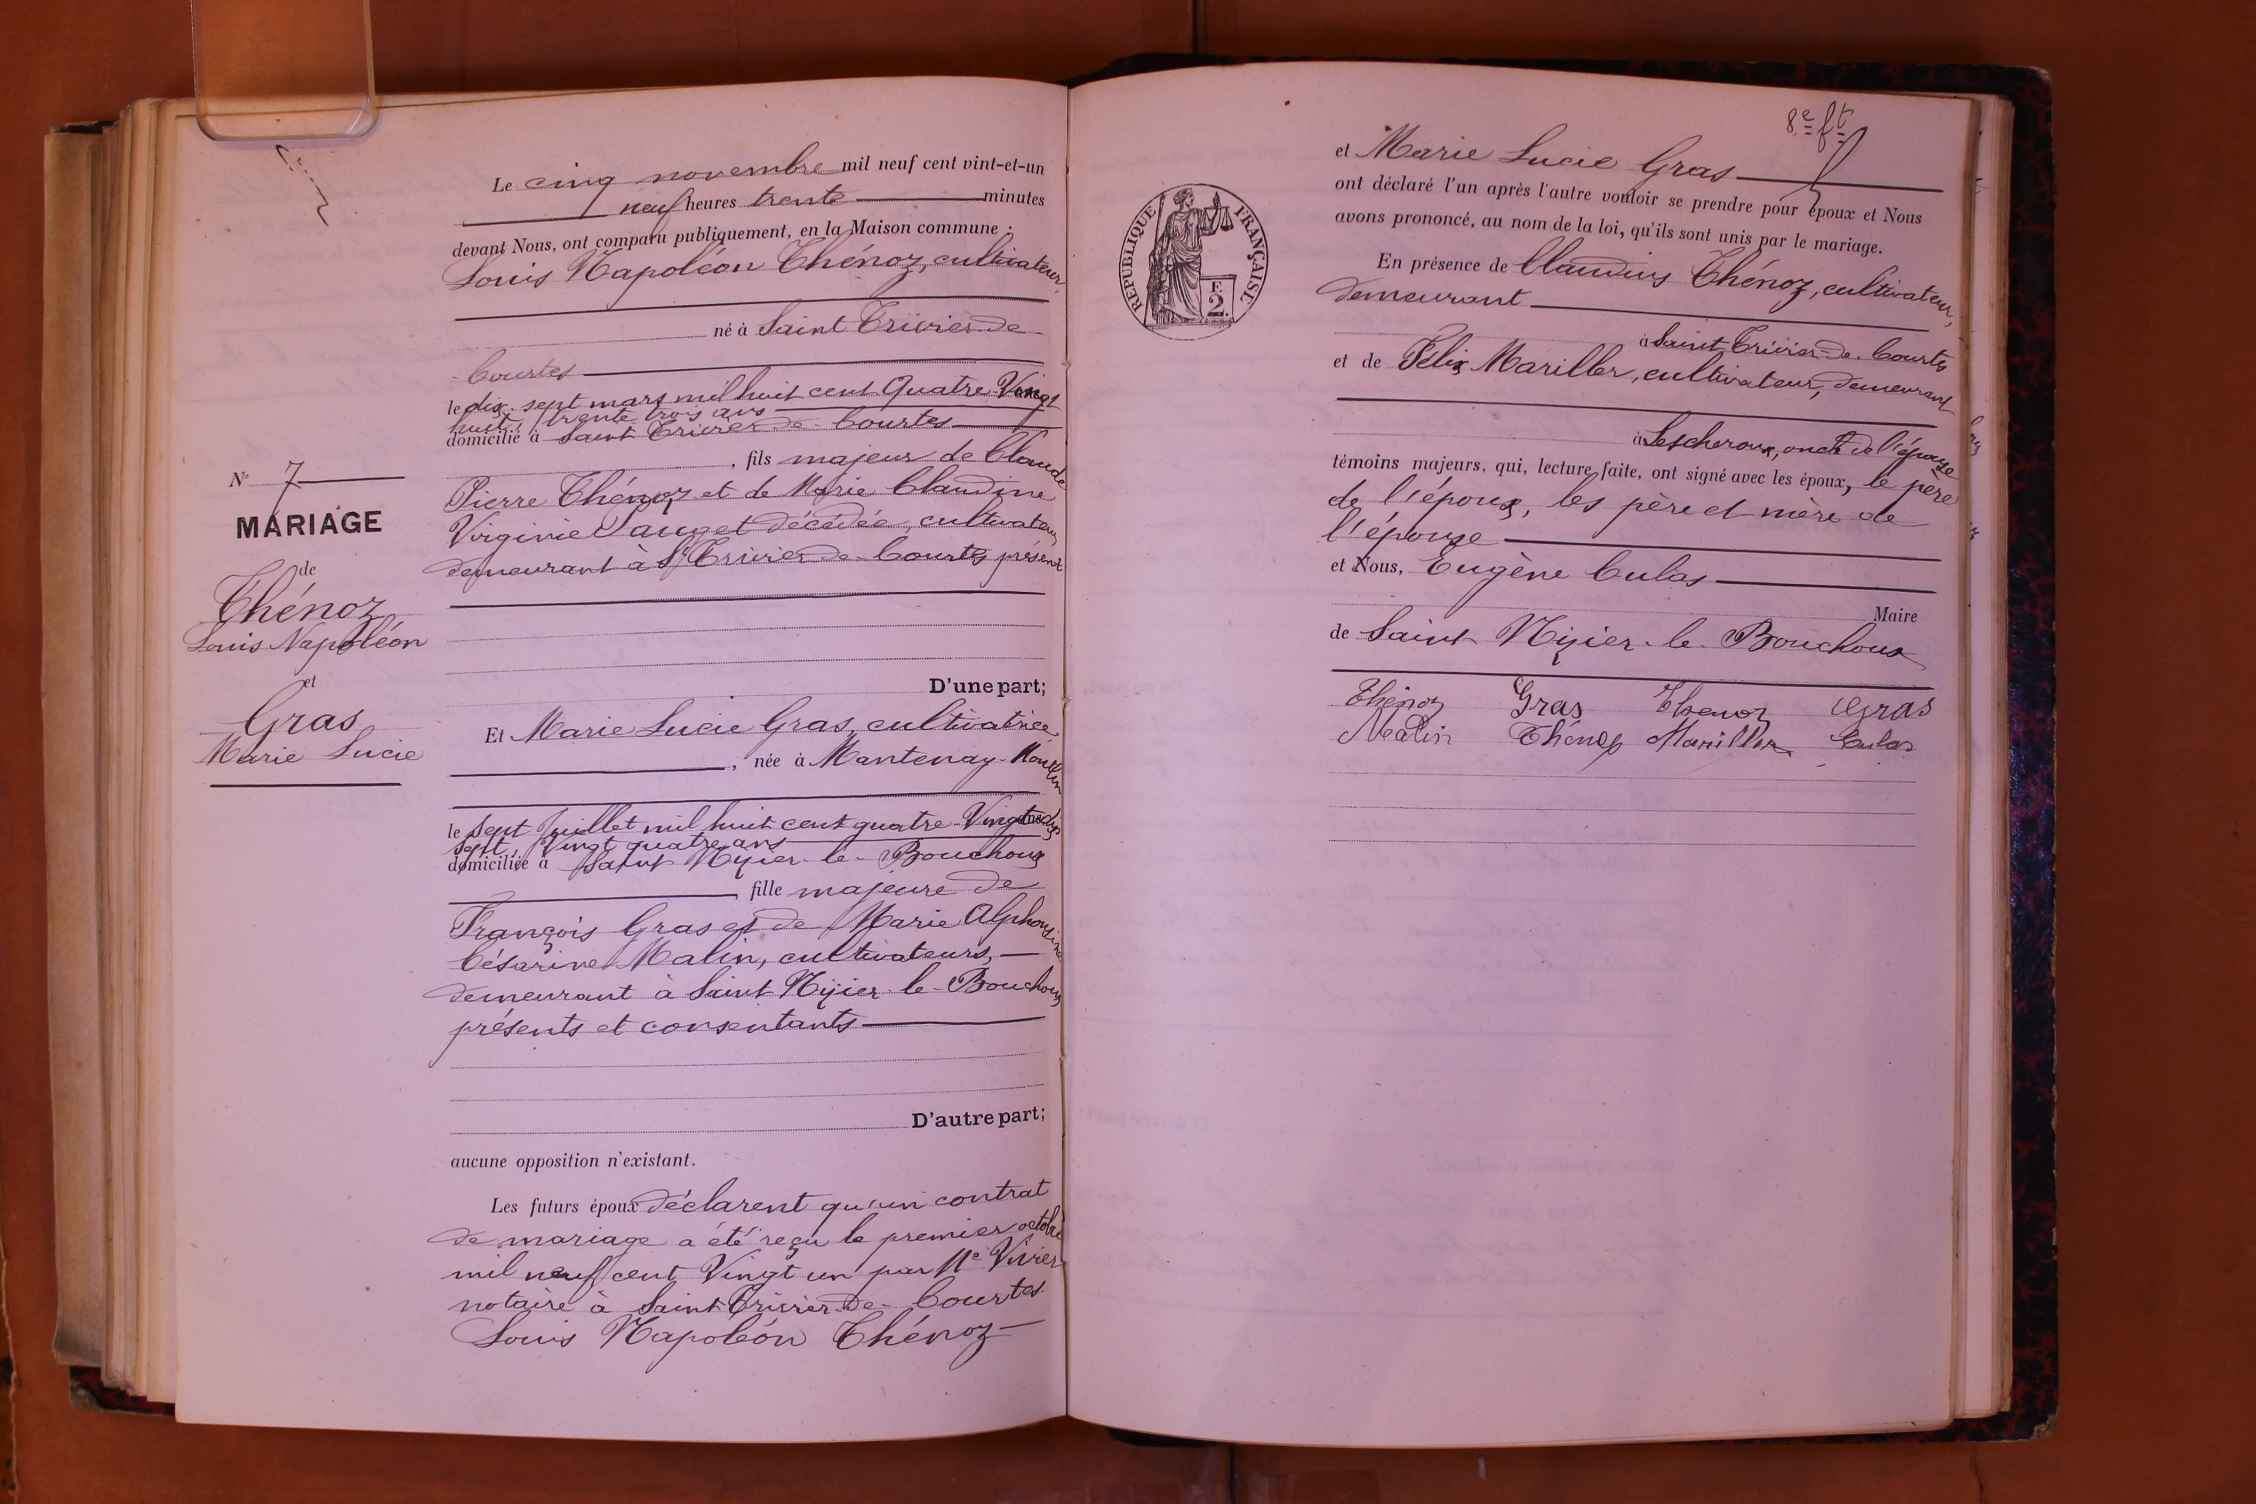 Le cinq novembre mil neuf cent vint-et-un
neuf heures trente minutes
devant Nous, ont comparu publiquement, en la Maison commune :
Louis Napoléon Thénoz, cultivateur,
né à Saint Trivier-de-
Courtes
le dix-sept mars mil huit cent Quatre-Vingt
huit, trente trois ans
domicilié à Saint Trivier-de-Courtes
, fils majeur de Claude
Pierre Thénoz et de Marie Claudine
Virginie Pauget décédée, cultivateur
demeurant à St Trivier-de-Courtes présent
D'une part;
Et Marie Lucie Gras, cultivatrice
, née à Mantenay-Montlin
le sept juillet mil huit cent quatre-Vingt
sept, Vingt quatre ans
domiciliée à Saint Nizier-le-Bouchoux
fille majeure de
François Gras et de Marie Alphonsine
Césarine Malin, cultivateurs,
demeurant à Saint Nizier-le-Bouchoux
présents et consentants
D'autre part;
aucune opposition n'existant.
Les futurs époux déclarent qu'un contrat
de mariage a été reçu le premier octobre
mil neuf cent Vingt un par Me Vivier
notaire à Saint-Trivier-de-Courtes.
Louis Napoléon Thénoz
No 7
MARIAGE
de
Thénoz
Louis Napoléon
et
Gras
Marie Lucie
8e ft
et Marie Lucie Gras
ont déclaré l'un après l'autre vouloir se prendre pour époux et Nous
avons prononcé, au nom de la loi, qu'ils sont unis par le mariage.
En présence de Claudius Thénoz, cultivateur,
demeurant
à Saint Trivier-de-Courtes
et de Félix Mariller, cultivateur, demeurant
à Lescheroux, oncle de l'épouse
témoins majeurs, qui, lecture faite, ont signé avec les époux, le père
de l'époux, les père et mère de
l'épouse
et Nous, Eugène Culas
Maire
de Saint Nizier-le-Bouchoux
Thénoz Gras Thenoz Gras
Malin Thénoz Mariller Culas
RÉPUBLIQUE FRANÇAISE
F.
2.